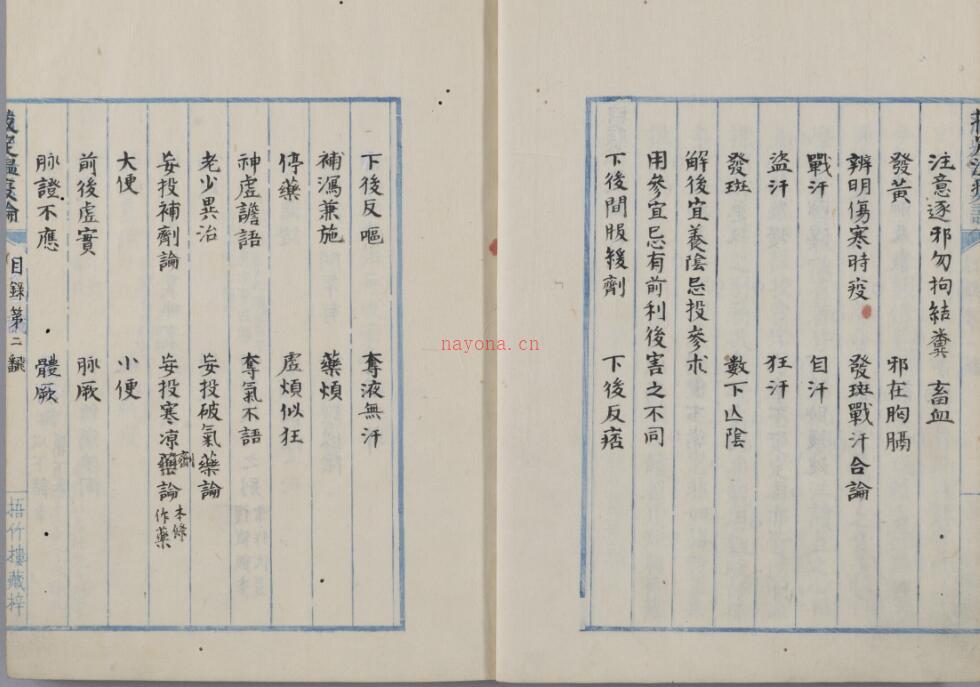 注意逐邪勿拘結糞　畜血
發黃　邪在胸膈
辨明傷寒時疫　發斑戰汗合論
戰汗　自汗
盜汗　狂汗
發斑　數下亾陰
解後宜養陰忌投參朮
用參宜忌有前利後害之不同
下後間服緩劑　下後反痞
下後反嘔　奪液無汗
補瀉兼施　藥煩
停藥　虛煩似狂
神虛譫語　奪氣不語
老少異治　妄投破氣藥論
妄投補劑論　妄投寒凉藥論 劑 本條作藥
大便　小便
前後虛實　脉厥
脉證不應　體厥
目錄第二
梧竹樓藏梓
nayona.cn